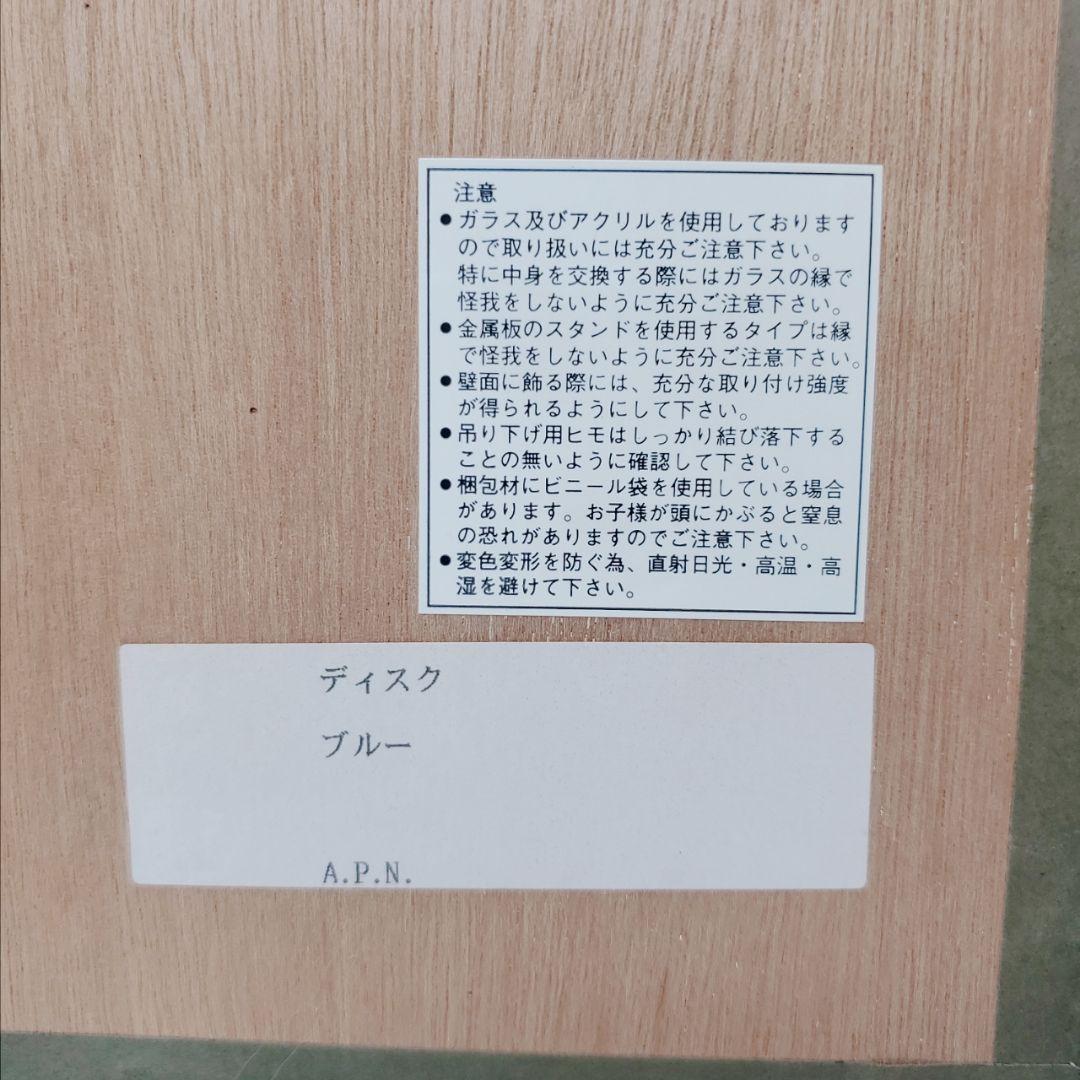 注意
●ガラス及びアクリルを使用しております
ので取り扱いには充分ご注意下さい。
特に中身を交換する際にはガラスの縁で
怪我をしないように充分ご注意下さい。
●金属板のスタンドを使用するタイプは縁
で怪我をしないように充分ご注意下さい。
●壁面に飾る際には、充分な取り付け強度
が得られるようにして下さい。
●吊り下げ用ヒモはしっかり結び落下する
ことの無いように確認して下さい。
●梱包材にビニール袋を使用している場合
があります。お子様が頭にかぶると窒息
の恐れがありますのでご注意下さい。
●変色変形を防ぐ為、直射日光・高温・高
湿を避けて下さい。
ディスク
ブルー
A.P.N.